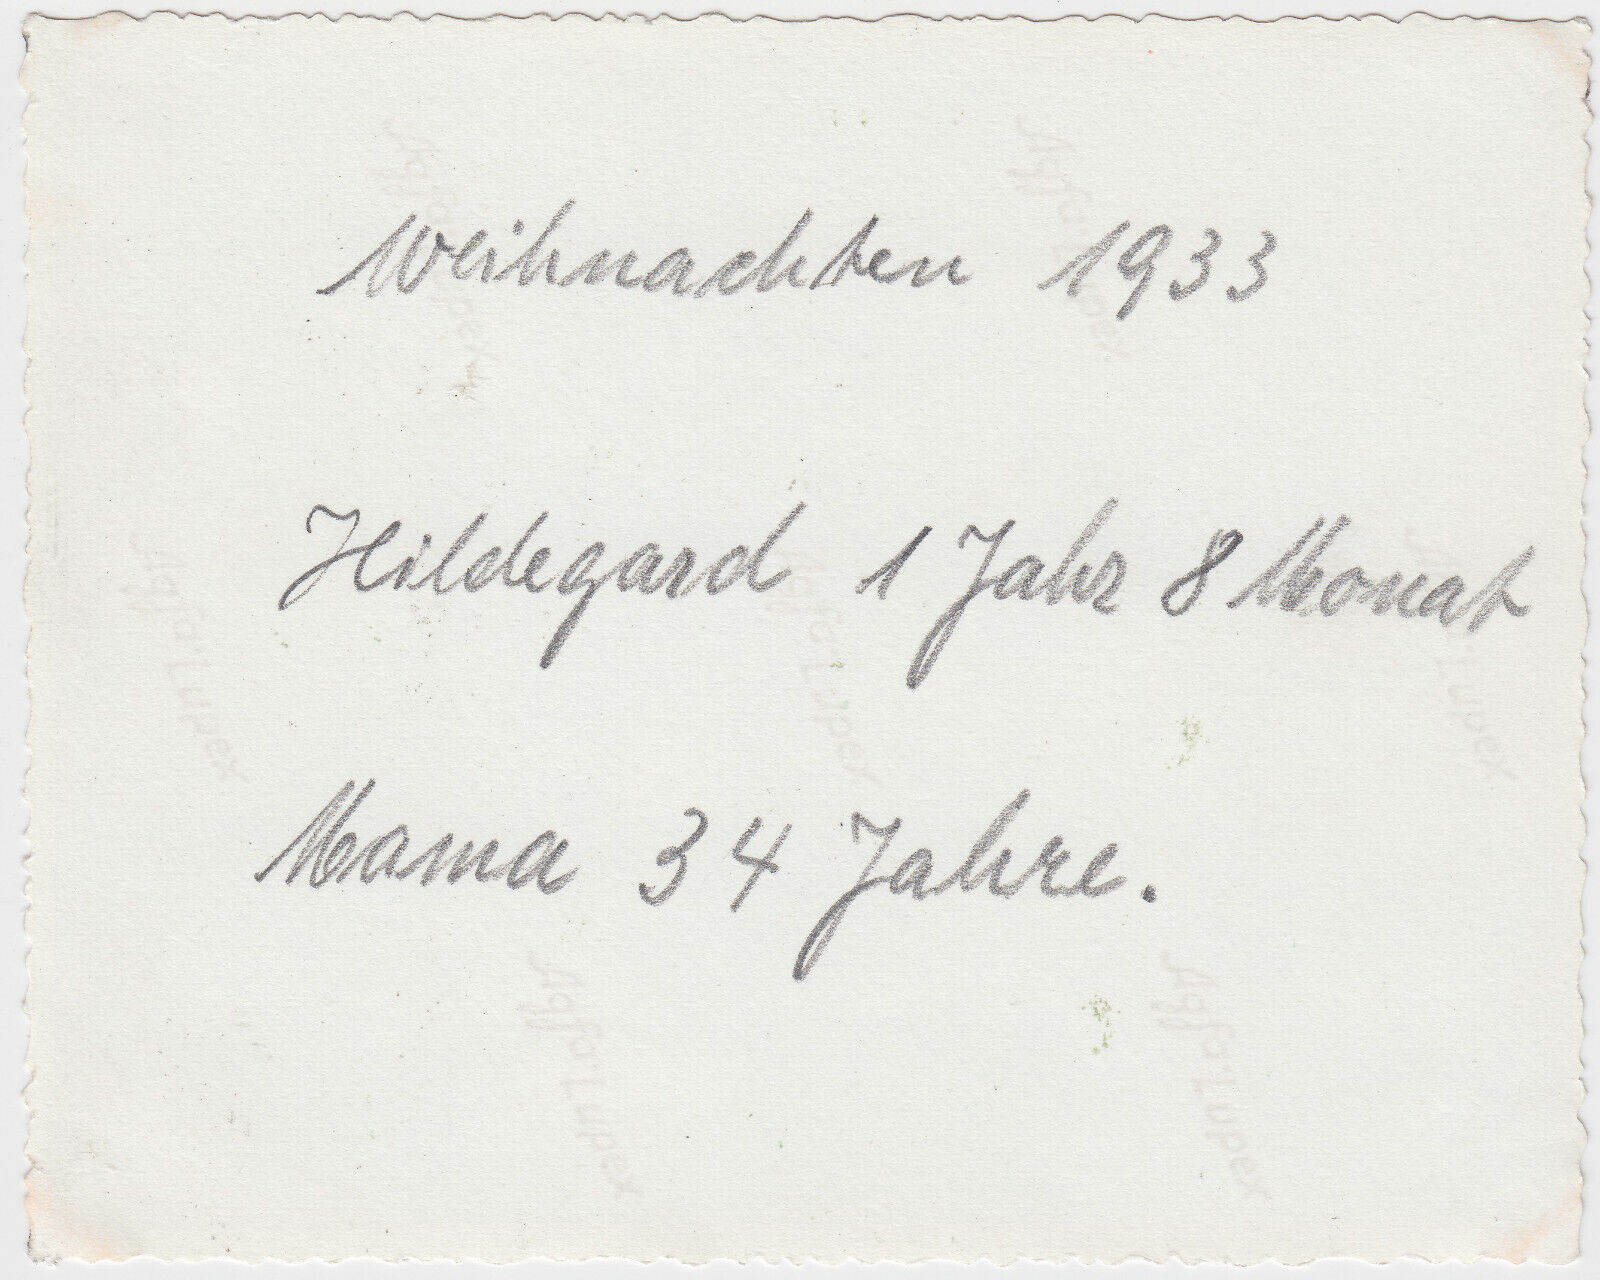 Weihnachten 1933
Hildegard 1 Jahr 8 Monat
Mama 34 Jahre.
Agfa-Lupex
Agfa-Lupex
Agfa-Lupex
Agfa-Lupex
Agfa-Lupex
Agfa-Lupex
Agfa-Lupex